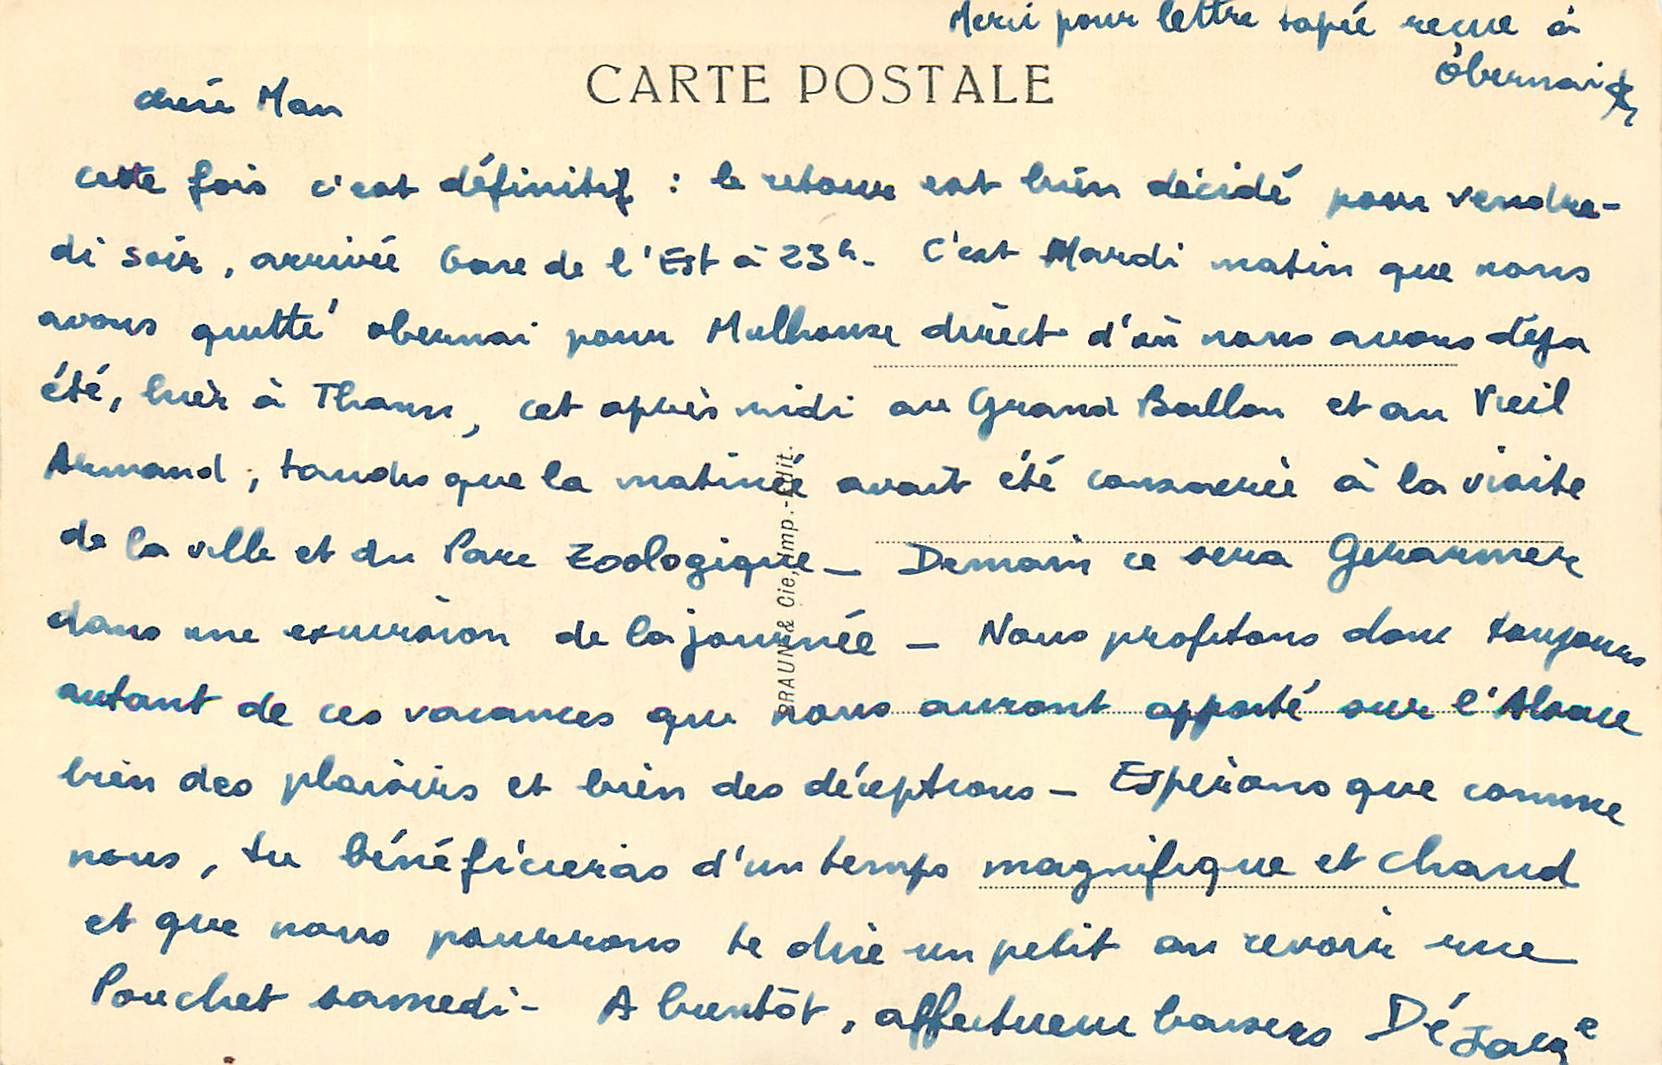 Merci pour lettre tapée reçue à
Obernai
CARTE POSTALE
chère Man
cette fois c'est définitif : le retour est bien décidé pour vendre-
di soir, arrivée Gare de l'Est à 23h. C'est Mardi matin que nous
avons quitté obernai pour Mulhouse direct d'où nous avons déja
été, hier à Thann, cet après midi au Grand Ballon et au Vieil
Armand, tandis que la matinée avait été consacrée à la visite
de la ville et du Parc Zoologique - Demain ce sera Gérarmer
dans une excursion de la journée - Nous profitons donc toujours
autant de ces vacances qui nous auront apporté sur l'Alsace
bien des plaisirs et bien des déceptions - Espérons que comme
nous, tu bénéficieras d'un temps magnifique et chaud
et que nous pourrons te dire un petit au revoir rue
Pouchet samedi - A bientôt, affectueux baisers Dé Jacqe
BRAUN & Cie, Imp.-Edit.